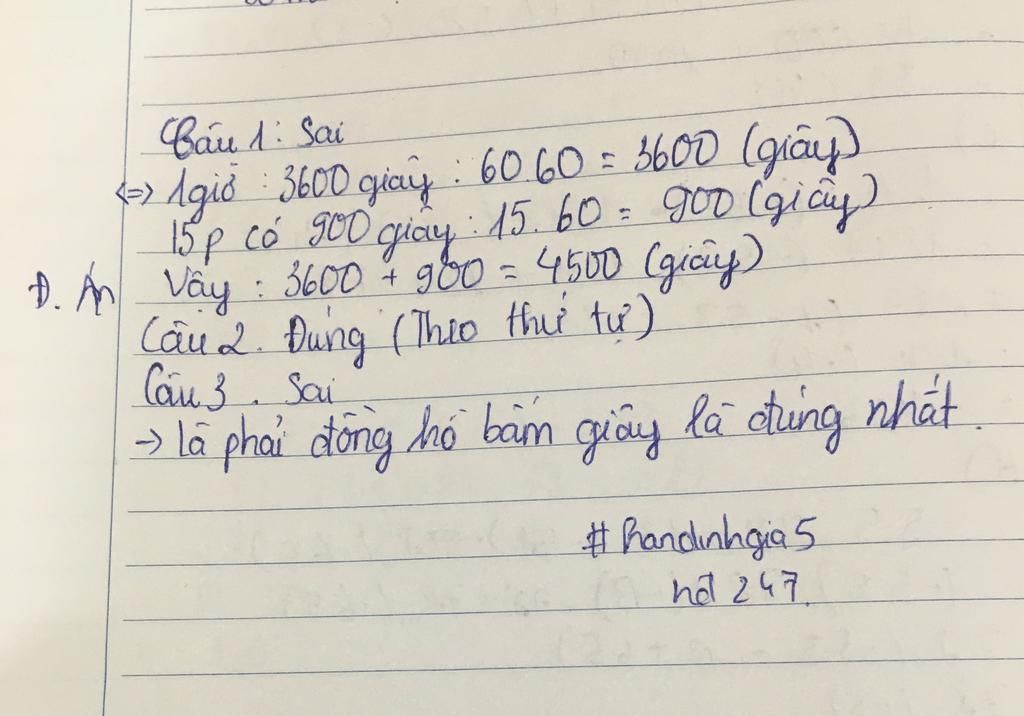 Câu 1: Sai
<=> 1giờ : 3600 giây : 60.60 = 3600 (giây)
15p có 900 giây : 15. 60 = 900 (giây)
Đ. Án Vậy : 3600 + 900 = 4500 (giây)
Câu 2. Đúng (Theo thứ tự)
Câu 3. Sai
-> Là phải đồng hồ bấm giây là đúng nhất.
# Phandinhgia5
hd 247.